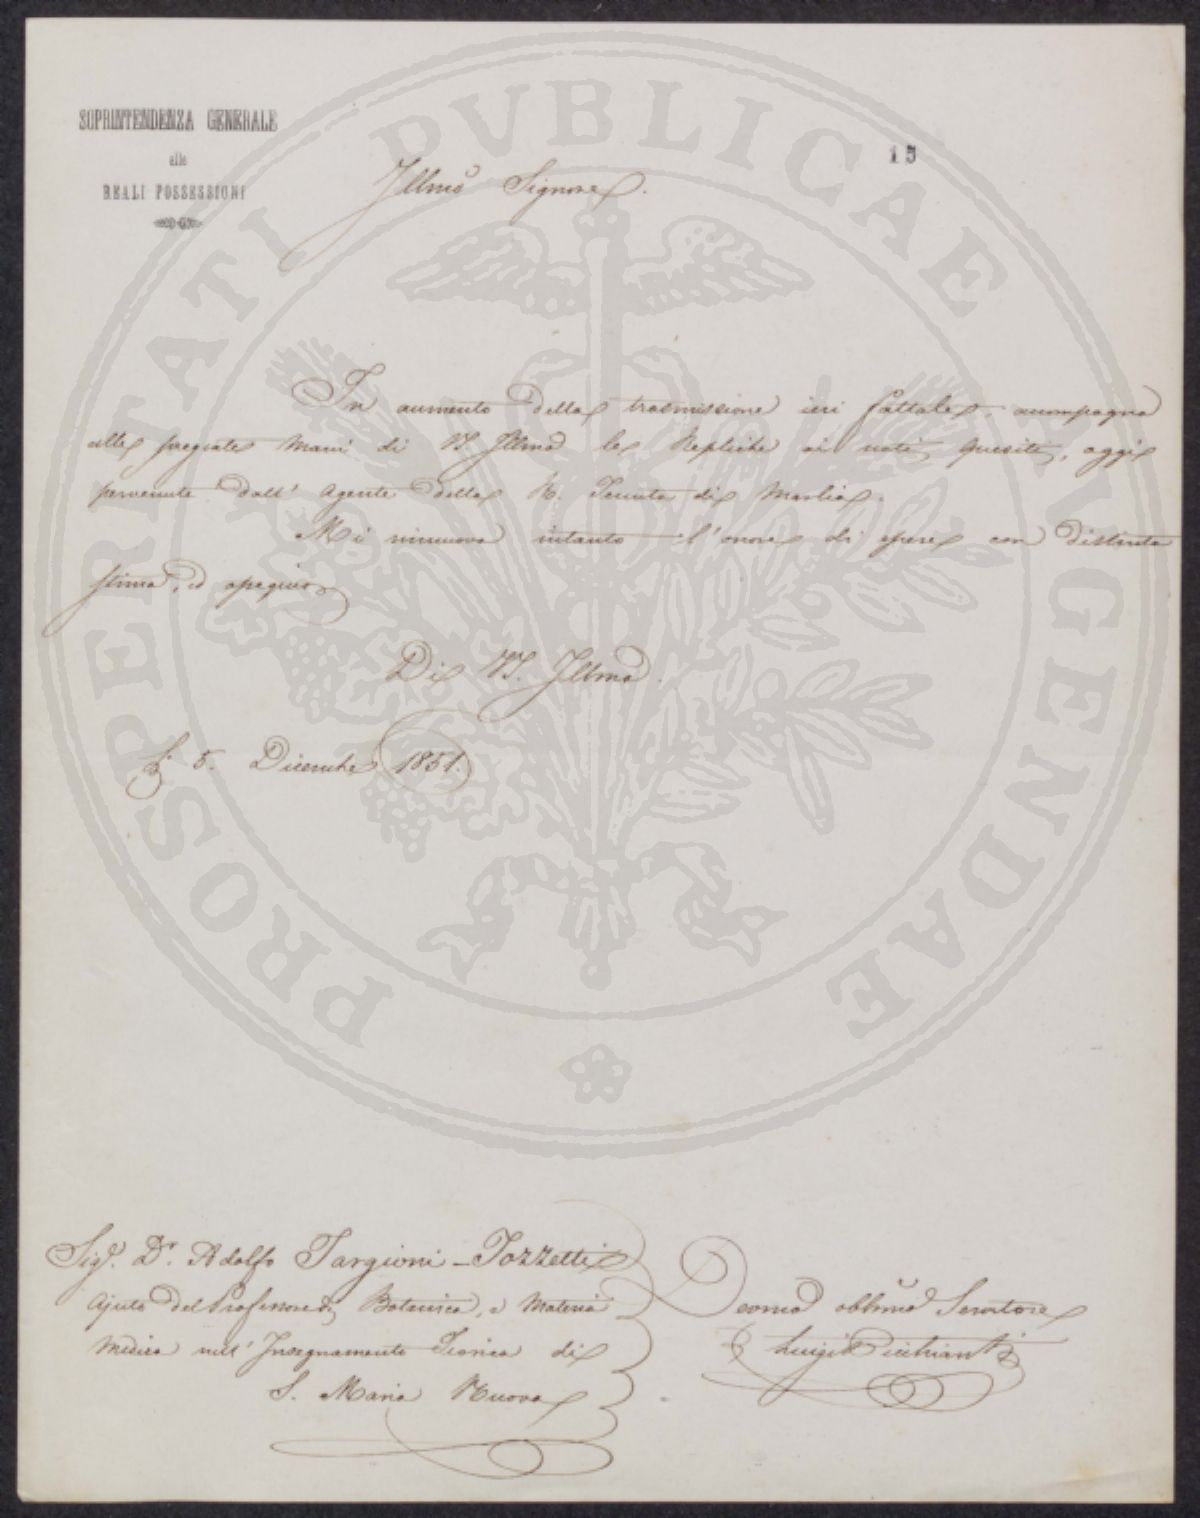 SOPRINTENDENZA GENERALE
alle
REALI POSSESSIONI
15
Illmo Signore.
In aumento della trasmissione ieri fattale, accompagno
alle pregiate mani di VS Illma le Repliche ai noti quesiti, oggi
pervenute dall' Agente della R. Tenuta di Marlia.
Mi rinnuovo intanto l'onore di essere con distinta
stima, ed ossequio
Di VS. Illma.
Li 5. Dicembre 1851.
Sigr. Dr. Adolfo Targioni-Tozzetti
Ajuto del Professore di Botanica, e Materia
Medica nell' Insegnamento Teorico di
S. Maria Nuova
Devmo obblmo Servitore
Luigi Picchianti
PROSPERITATI PVBLICAE AVGENDAE